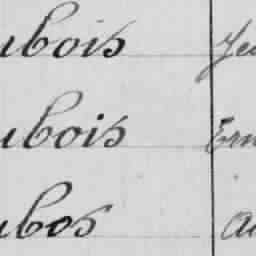 ubois Jeu
ubois Ern
ubos Au